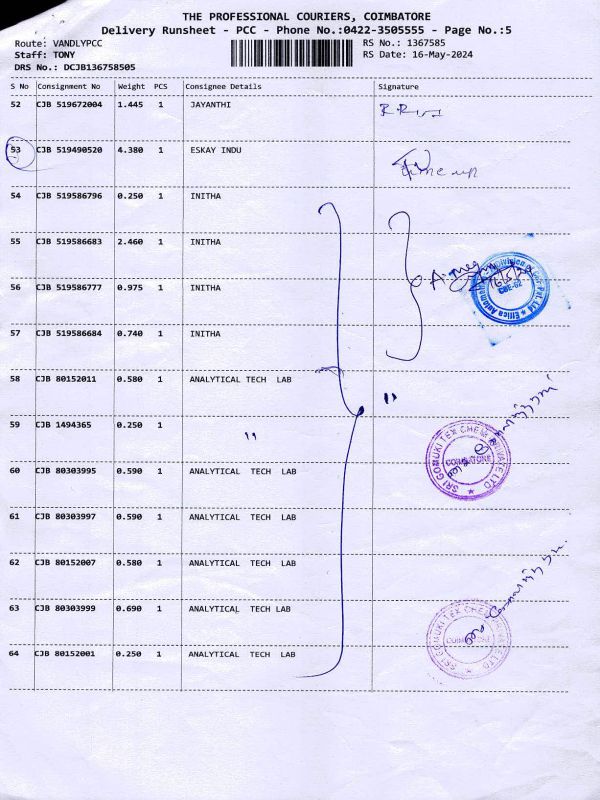 THE PROFESSIONAL COURIERS, COIMBATORE
Delivery Runsheet - PCC - Phone No.:0422-3505555 - Page No.:5
Route: VANDLYPCC RS No.: 1367585
Staff: TONY RS Date: 16-May-2024
DRS No.: DCJB136758505
S No Consignment No Weight PCS Consignee Details Signature
52 CJB 519672004 1.445 1 JAYANTHI
53 CJB 519490520 4.380 1 ESKAY INDU
Time up
54 CJB 519586796 0.250 1 INITHA
55 CJB 519586683 2.460 1 INITHA
56 CJB 519586777 0.975 1 INITHA
CBE-62
57 CJB 519586684 0.740 1 INITHA
58 CJB 80152011 0.580 1 ANALYTICAL TECH LAB
"
59 CJB 1494365 0.250 1 "
SRI GOMUKI TEX CHEM PRIVATE LTD
60 CJB 80303995 0.590 1 ANALYTICAL TECH LAB
61 CJB 80303997 0.590 1 ANALYTICAL TECH LAB
62 CJB 80152007 0.580 1 ANALYTICAL TECH LAB
63 CJB 80303999 0.690 1 ANALYTICAL TECH LAB
SRI GOMUKI TEX CHEM PRIVATE LTD
64 CJB 80152001 0.250 1 ANALYTICAL TECH LAB